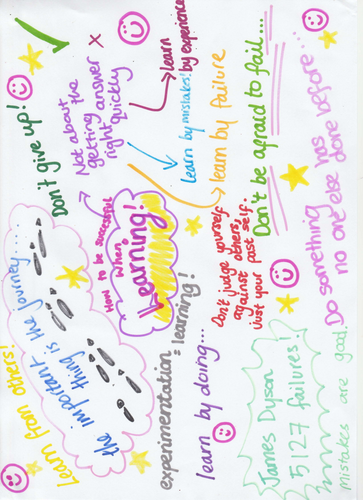 Learn from others!
the important
thing is the journey.....
Don't give up!
Not about the
getting answer
right quickly
learn
by experience
Learn by mistakes!
learn by failure
Don't be afraid to fail...
Do something
no one else has
done before...
How to be successful
when
Learning!
Don't judge yourself
against others,
just your past self.
experimentation = learning!
learn by doing...
James Dyson
5127 failures!
Mistakes are good.